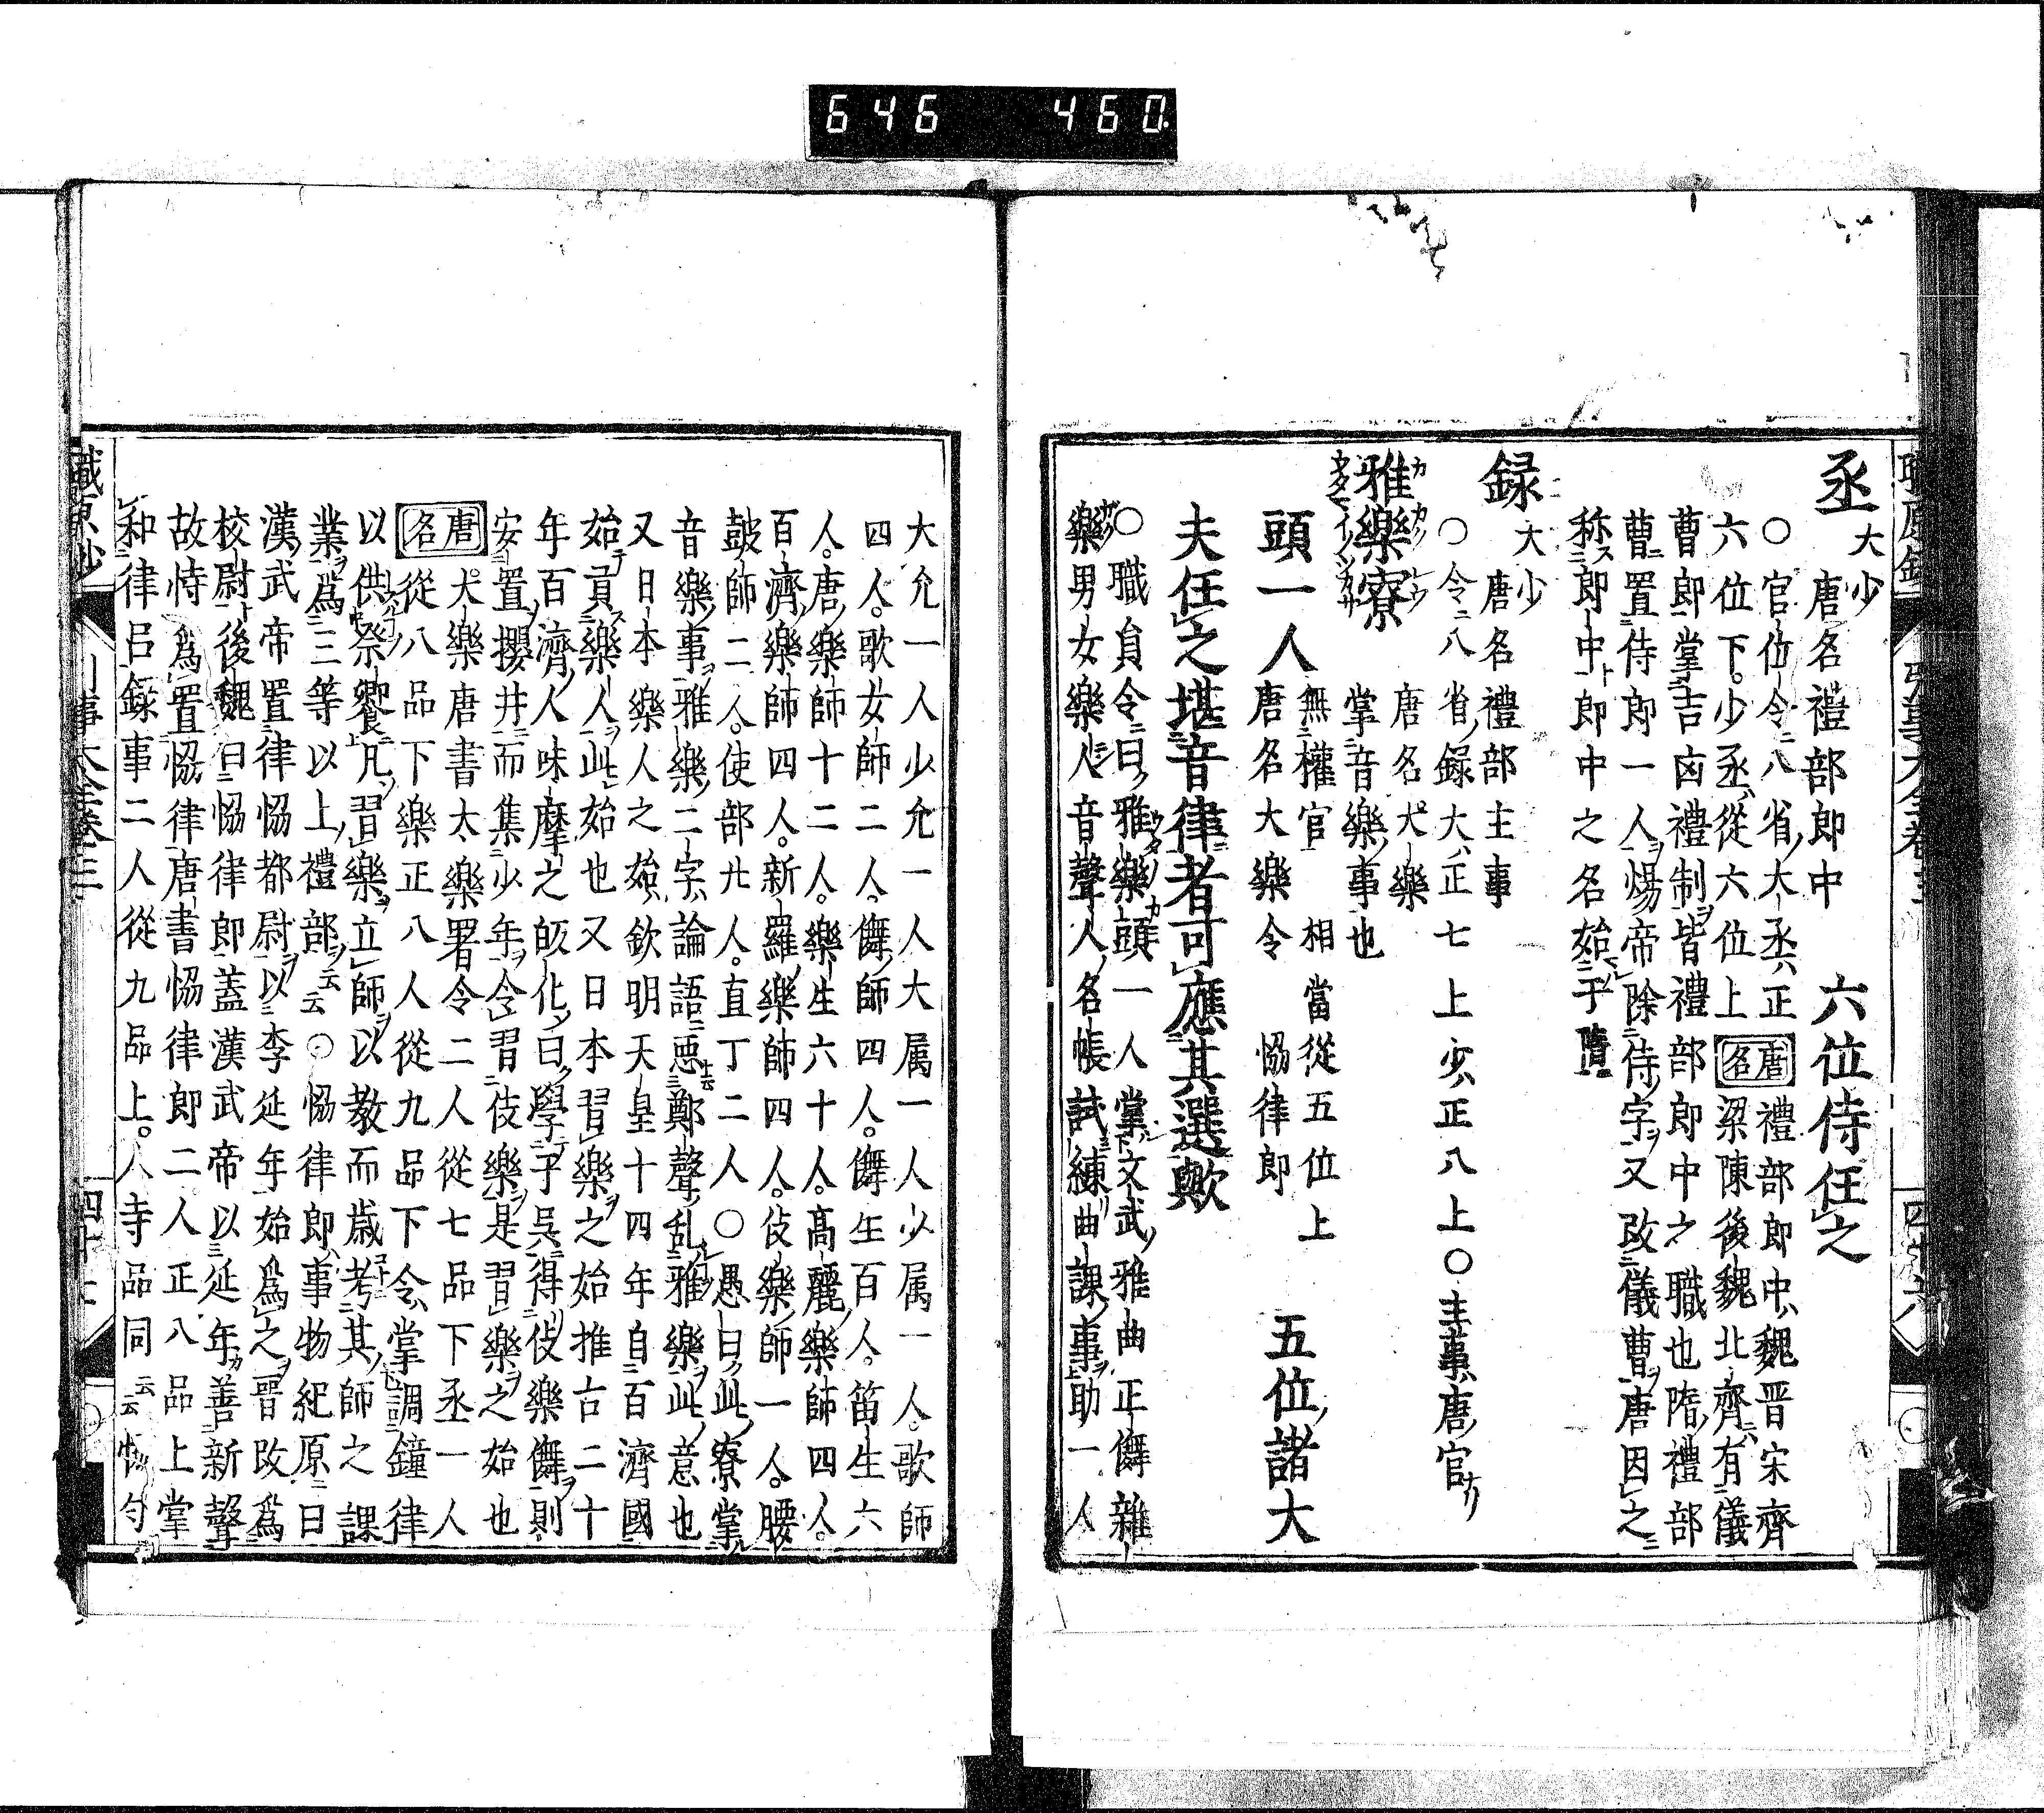 646 460
丞 大少 唐名禮部郎中 六位侍任之
〇官位令八省大丞正六位下少丞從六位上 唐名 禮部郎中魏晋宋齊
梁陳後魏北齊有儀
曹郎掌吉凶禮制皆禮部郎中之職也隋禮部
曹置侍郎一人煬帝除侍字又改儀曹唐因之
称郎中郎中之名始于隋
録 大少 唐名禮部主事
〇令八省録大正七上少正八上〇主事唐官ナリ
雅樂寮 唐名大樂
掌音樂事也
頭一人 無權官 相當從五位上
唐名大樂令 恊律郎
五位諸大
夫任之堪音律者可應其選歟
〇職員令曰雅樂頭一人掌文武雅曲正儛雜
樂男女樂人音聲人名帳試練曲課事助一人
大允一人少允一人大属一人少属一人歌師
四人歌女師二人儛師四人儛生百人笛生六
人唐樂師十二人樂生六十人高麗樂師四人
百濟樂師四人新羅樂師四人伎樂師一人腰
鼓師二人使部廿人直丁二人〇愚曰此寮掌
音樂事雅樂二字論語惡鄭聲乱雅樂此意也
又日本樂人之始欽明天皇十四年自百濟國
始貢樂人此始也又日本習樂之始推古二十
年百濟人味摩之皈化曰學于呉得伎樂儛則
安置櫻井而集少年令習伎樂是習樂之始也
唐名 大樂唐書太樂署令二人從七品下丞一人
從八品下樂正八人從九品下令掌調鐘律
以供祭饗凡習樂立師以教而歳考其師之課
業爲三等以上禮部云云〇恊律郎事物紀原曰
漢武帝置律恊都尉以李延年始爲之晋改爲
校尉後魏曰恊律郎蓋漢武帝以延年善新聲
故特爲置恊律唐書恊律郎二人正八品上掌
和律呂録事二人從九品上八寺品同云云